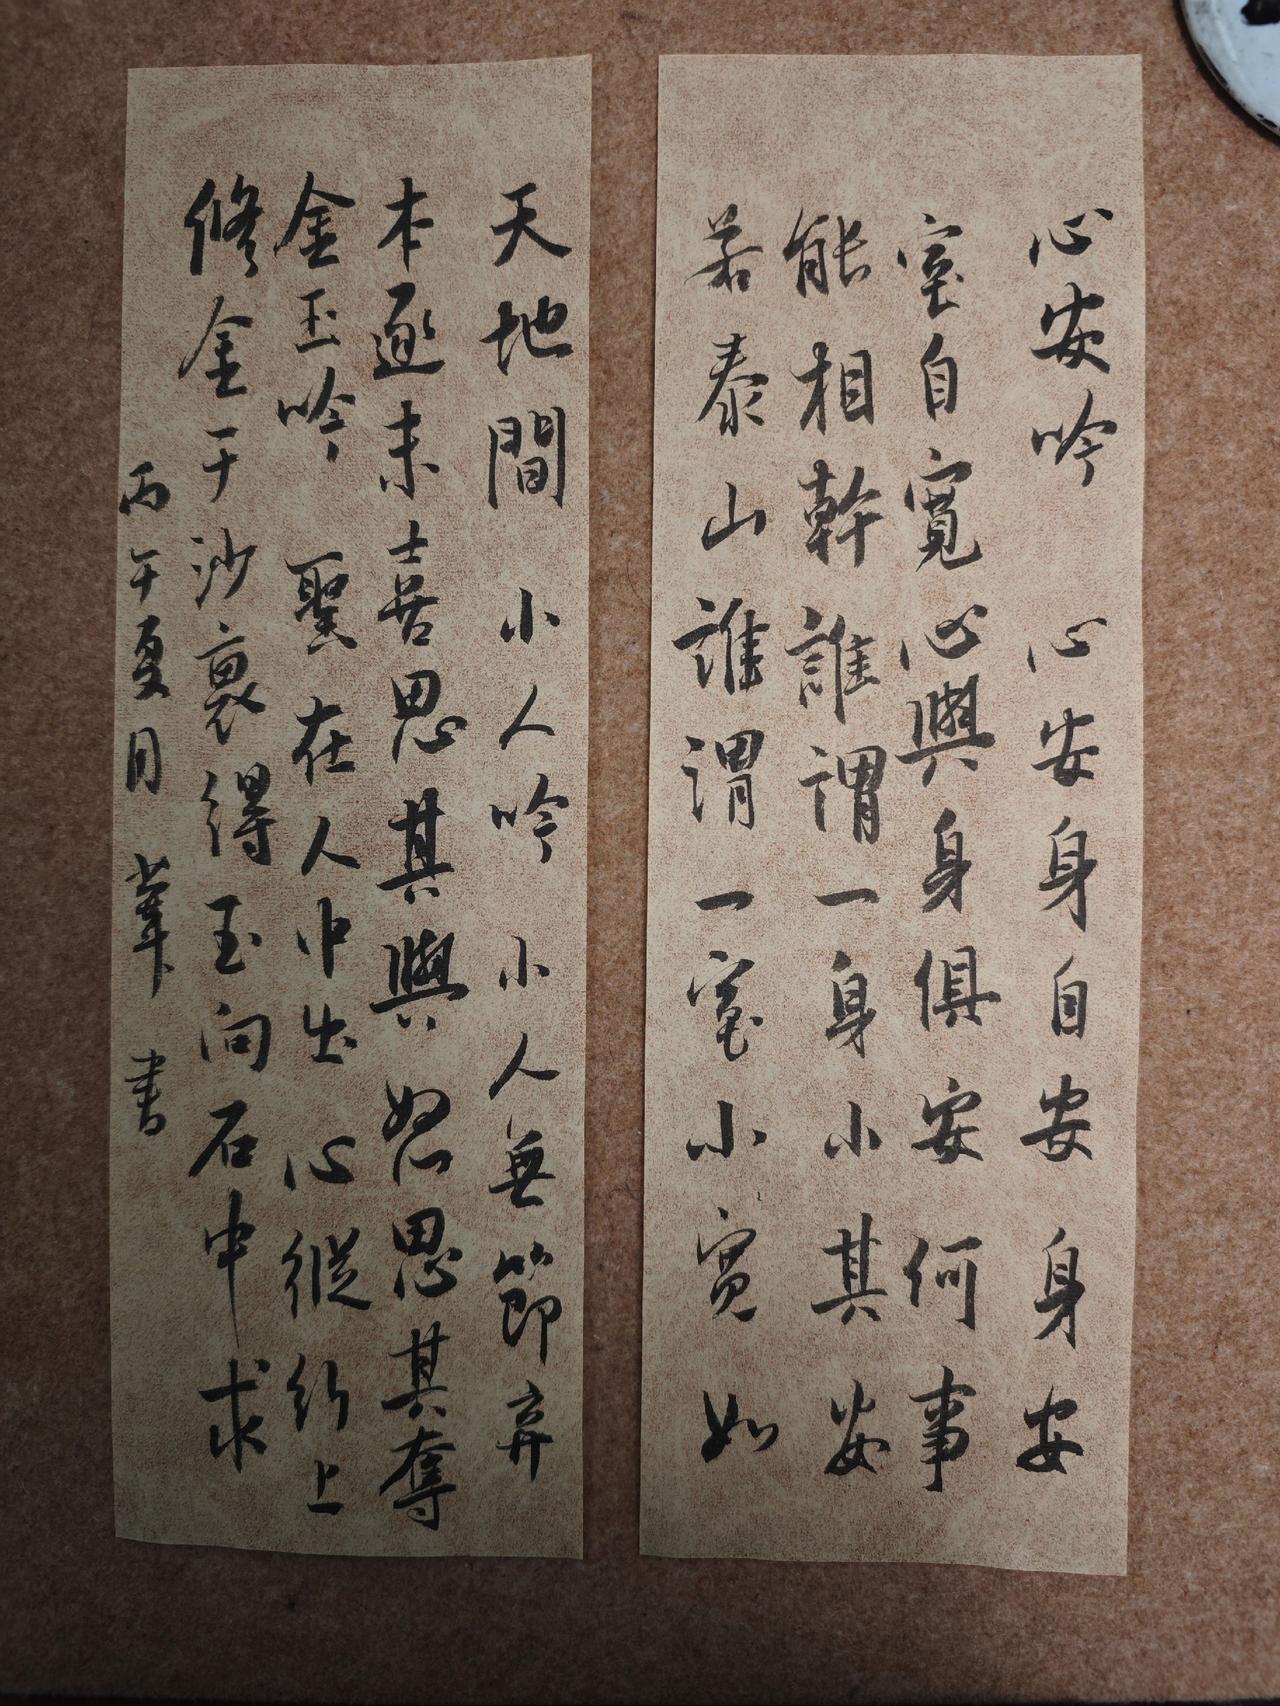 心安吟 心安身自安 身安
室自寬 心與身俱安 何事
能相幹 誰謂一身小 其安
若泰山 誰謂一室小 寬如
天地間 小人吟 小人無節弃
本逐末 喜思其與 怒思其奪
金玉吟 聖在人中出 心縱行上
修 金于沙裏得 玉向石中求
丙午夏月 葦書